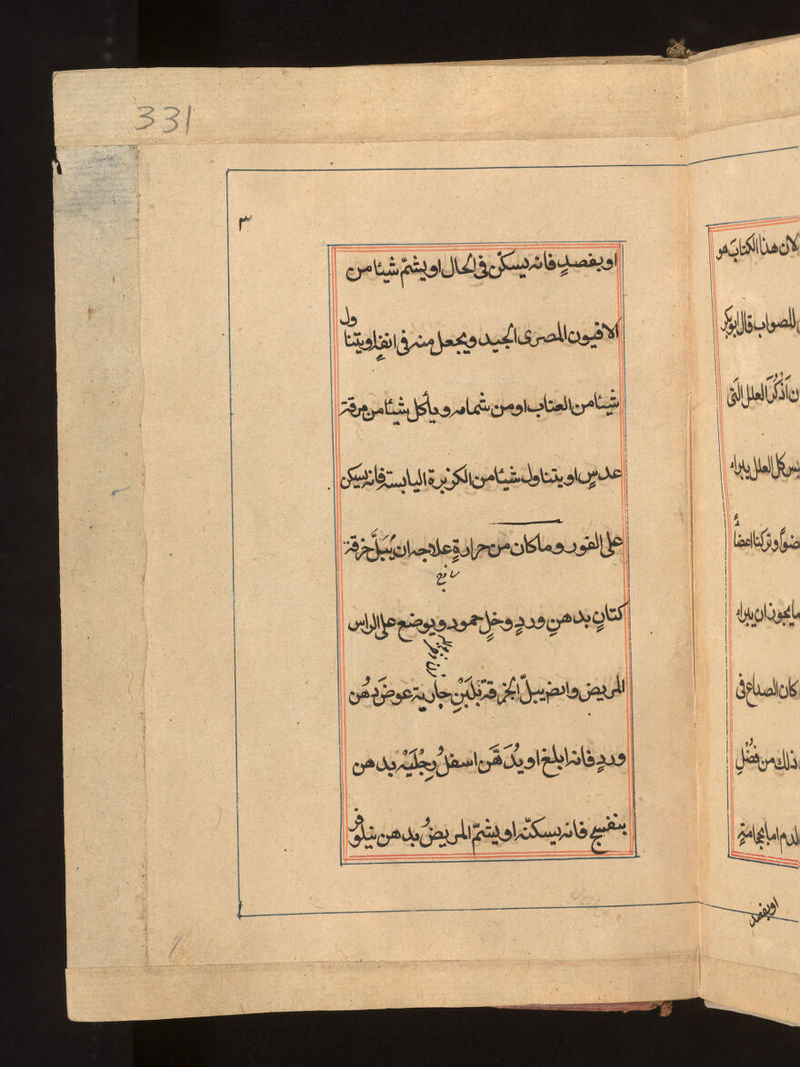 331
٣
او بفصدٍ فانه يسكّن فى الحال او يشمّ شيئا من
الافيون المصرى الجيد ويجعل منه فى انفه او يتناول
شيئا من العناب او من شمامه و يأكل شيئا من مرقة
عدسٍ او يتناول شيئا من الكزبرة اليابسة فانه يسكن
على الفور وما كان من حرارةٍ علاجه ان يُبَلَّ خرقة
كتانٍ بدهن وردٍ وخلٍ حمور ويوضع على الراس
المريض وايض يبلّ الخرقة بلَبَنِ جارية عوضَ دهُن
وردٍ فانه ابلغ او يُدَهَّن اسفلُ رِجْلَيْه بدهن
بنفسج فانه يسكنّه او يشمّ المريضُ بدهن نيلوفر
لان هذا الكتابَ هو
للصواب قال ابوبكر
ن اَذْكُرَ العلل الّتى
يس كل العلل يبراء
ضواً وتركنا اعضاً
ما يجوز ان يبراء
كان الصداع فى
ذلك من فَضْلِ
الدم اما بحجامتهٍ
او بفصد